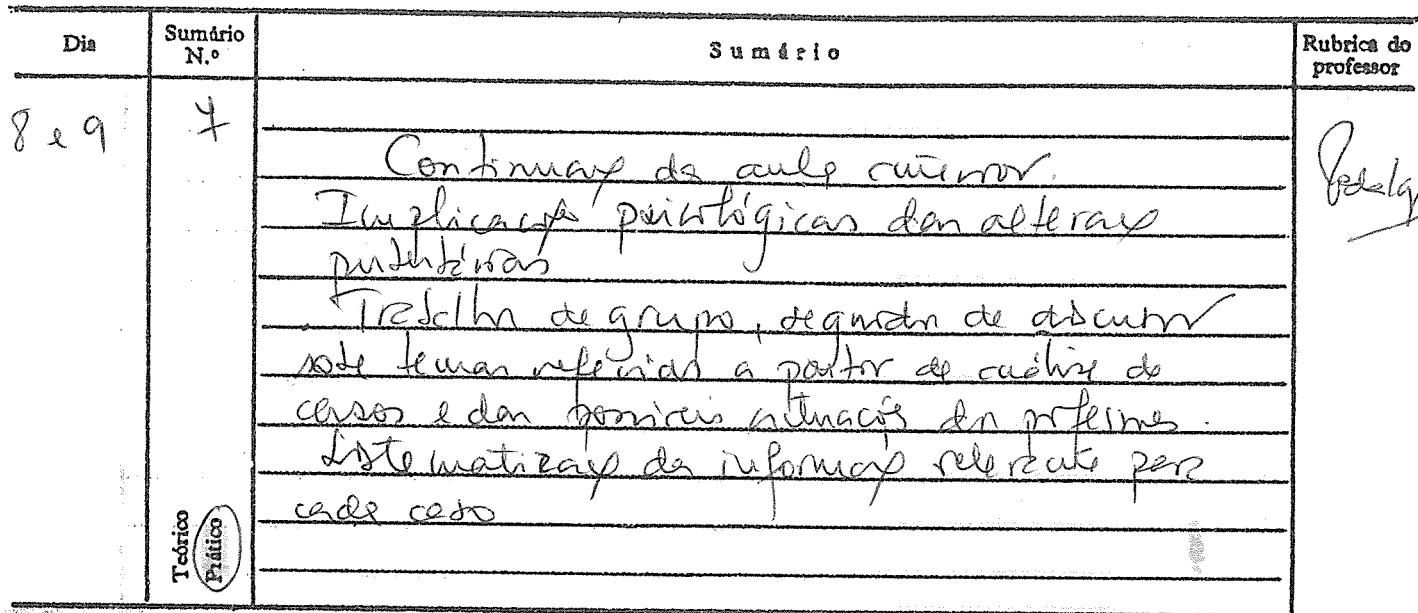 Dia
Sumário N.º
Sumário
Rubrica do professor
8 e 9
7
Continuação da aula anterior.
Implicações psicológicas das alterações
pubertárias
Trabalho de grupo, seguido de discussão
sobre temas referidos a partir de análise de
casos e das possíveis actuações dos professores.
Sistematização da informação relevante para
cada caso
Teórico
Prático